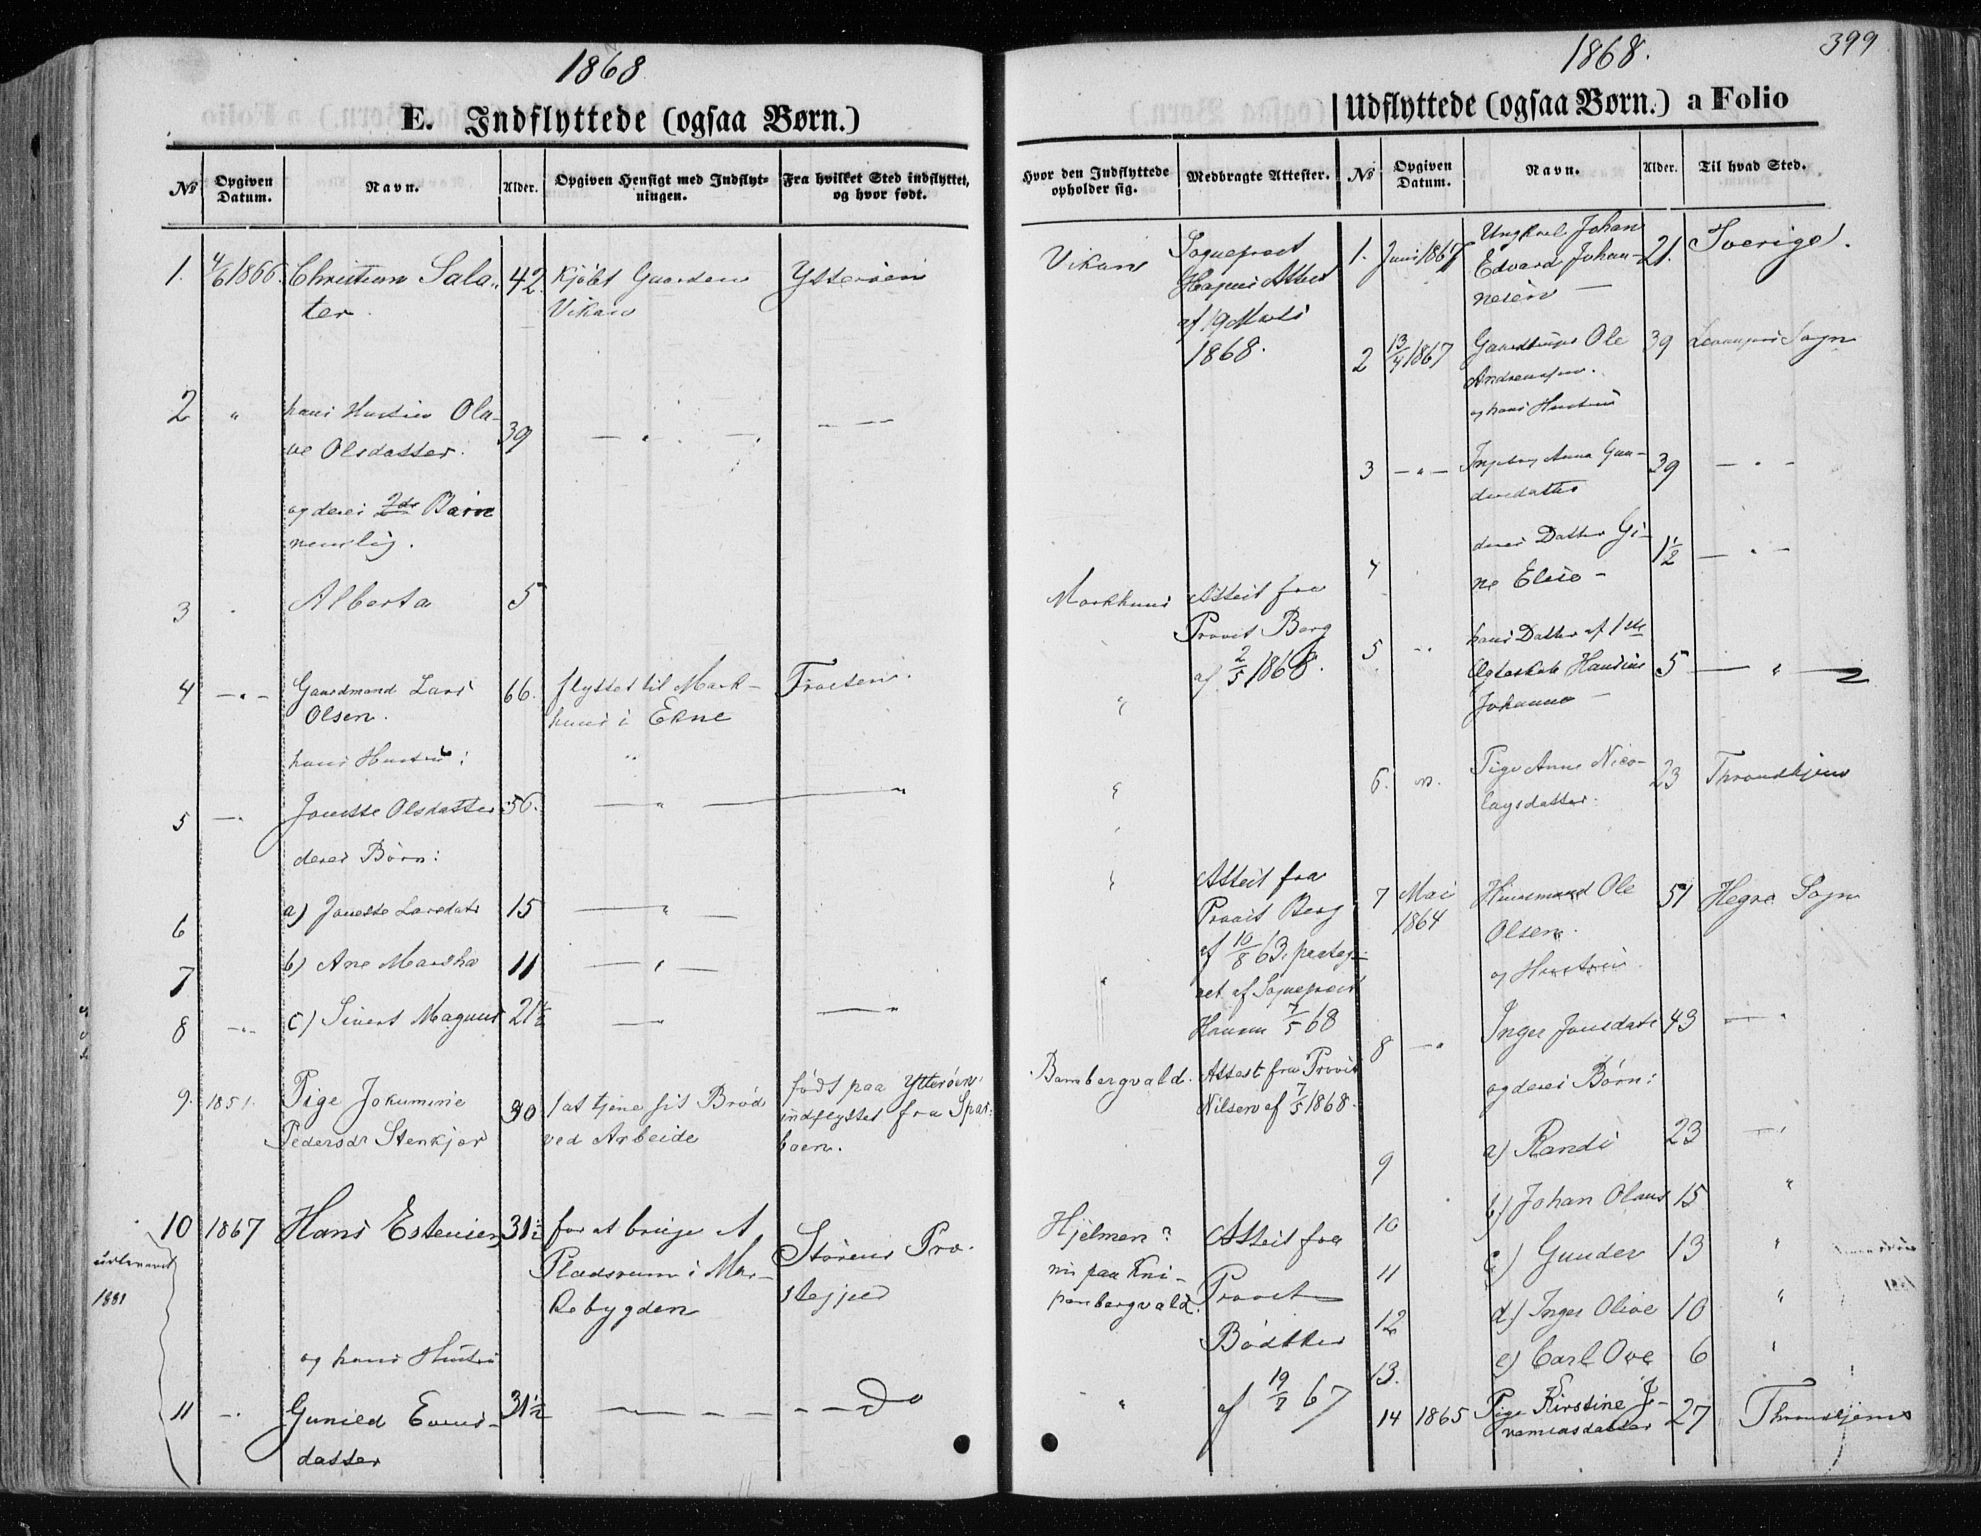 1868
E. Indflyttede (ogsaa Børn.)
No
Opgiven Datum.
Navn.
Alder.
Opgiven Hensigt med Indflyt-
ningen.
Fra hvilket Sted indflyttet,
og hvor født.
1. 4/6 1866. Christian Sala- 42. kjøbt Gaarden Ytterøen
ter. Vikan
2 " hans Hustru Ola-
ve Olsdatter. 39 — " — — —
og deres 2de Børn
nemlig.
3 Alberta 5
4 — " — Gaardmand Lars 66. flyttet til Mark- Frosten.
Olsen. huus i Ekne
hans Hustru:
5 — Jonette Olsdatter 56. — " — "
deres Børn:
6 a) Jonette Larsdatr 15 — " —
7 b) Ane Martha 11 — " —
8 — " — c) Sivert Magnus 2 1/2 — — " —
9. 1851. Pige Jokumine 30 at tjene sit Brød født paa Ytterøen,
Pedersdr Stenkjer ved Arbeide indflyttet fra Spar-
boen.
10 1867 Hans Estensen 31 1/2 for at bruge A Størens Præ-
Pladsrum i Mar- stegjeld
kabygden
1881
og hans Hustru
11 — Gunild Evens- 31 1/2 — — — — Do
datter
1868.
399
Udflyttede (ogsaa Børn.) a Folio
Hvor den Indflyttede
opholder sig.
Medbragte Attester.
No
Opgiven
Datum.
Navn.
Alder.
Til hvad Sted.
Vikan Sogneprest
Attest
af 19 Marts
1868.
Markhuus Attest fra
Provst Berg
af 2/5 1868.
"
"
" Attest fra
Provst Berg
af 10/8 63. paateg-
" net af Sogneprest
7/5 68
Bambergvald. Attest fra Provst
Nilsen af 7/5 1868.
Hjelmen? Attest fra
nu paa Kni- Provst
penbergvald. Bødtker
" af 19/7 67
1. Juni 1867 Ungkarl Johan 21. Sverige.
Edvard Johan-
nesen —
2 13/4 1867 Ole 39 Levanger Sogn
Andreassen.
og hans Hustru
3 — " — Ingeborg Anna Gun- 39 — " —
dersdatter
4 deres Datter Gi- 1 1/2 — " —
ne Elise —
5 " hans Datter af 1ste
Ægteskab 5 — " —
Johanna —
6. Pige Anne Nico- 23 Throndhjem
laysdatter.
7 Mai Huusmand Ole 51 Hegre Sogn
1864 Olsen.
og Hustru
8 — " Inger Jonsdatr 43 — "
og deres Børn:
9 a) Randi 23 — "
10 b) Johan Olaus 15 "
11 c) Gunder 13 "
12 d) Inger Olive 10 "
13. e) Carl Ove 6 "
14 1865 Pige Kirstine Je- 27 Throndhjem
remiasdatter